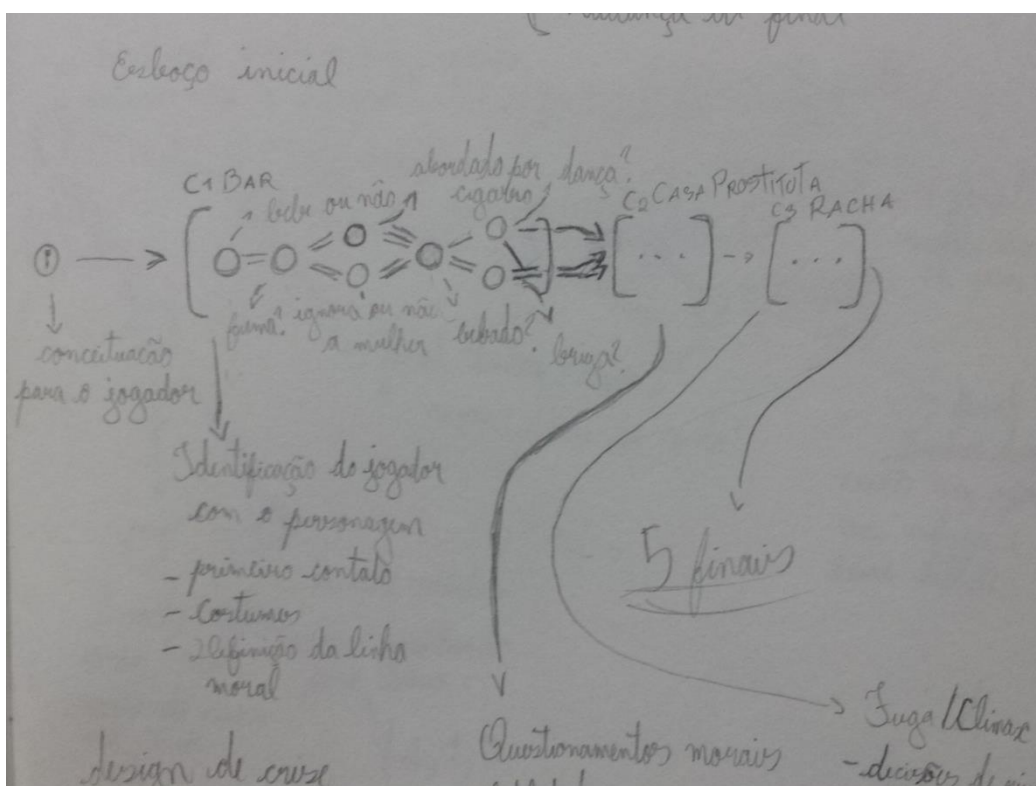 mudança in final
Esboço inicial
C1 BAR
bebe ou não
abordado por
cigarro
dança?
C2 CASA PROSTITUTA
C3 RACHA
fuma?
ignora ou não
a mulher
bebado?
briga?
conceituação
para o jogador
Identificação do jogador
com o personagem
- primeiro contato
- costumes
- Definição da linha
moral
5 finais
Fuga/Climax
- decisões de
Questionamentos morais
design de